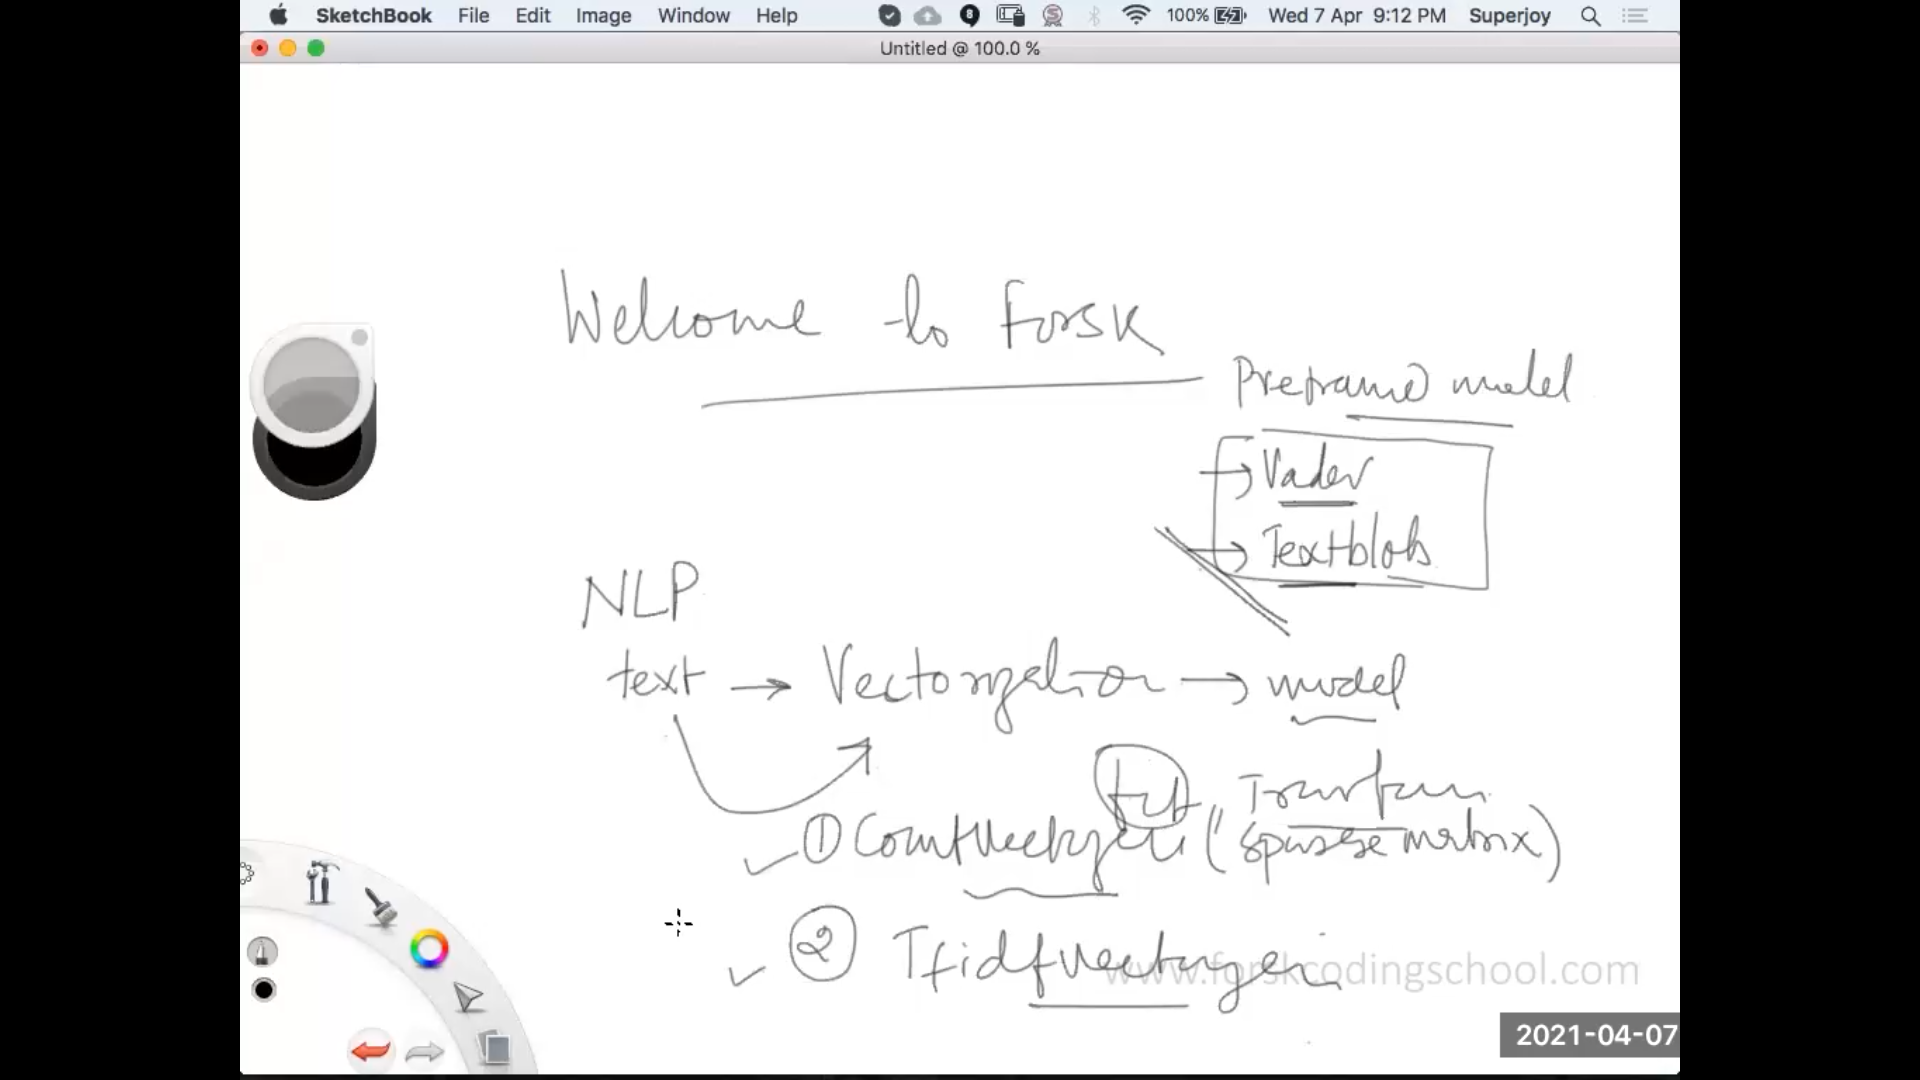 SketchBook File Edit Image Window Help 8 S 100% Wed 7 Apr 9:12 PM Superjoy
Untitled @ 100.0 %
Welcome to Forsk
Pretrained model
→ Vader
→ Textblob
NLP
text → Vectorization → model
fit Transform
① CountVectorizer (sparse matrix)
② Tfidfvectorizer
www.forskcodingschool.com
2021-04-07